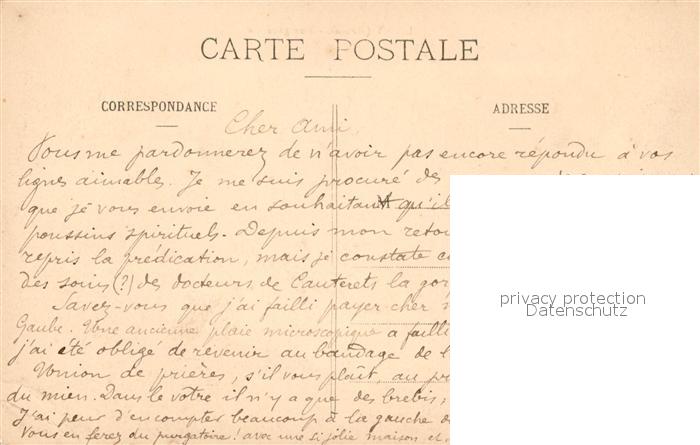 CARTE POSTALE
CORRESPONDANCE
ADRESSE
Cher Ami,
Vous me pardonnerez de n'avoir pas encore répondu à vos
lignes aimables. Je me suis procuré des
que je vous envoie en souhaitant qu'il
poussins spirituels. Depuis mon retou
repris la prédication, mais je constate
des soins (?) des docteurs de Cauterets la gor
Savez-vous que j'ai failli payer cher
Gaube. Une ancienne plaie microscopique a failli
j'ai été obligé de revenir au bandage de l
Union de prières, s'il vous plaît, au pr
du mien. Dans le votre il n'y a que des brebis,
J'ai peur d'en compter beaucoup à la gauche
Vous en ferez du purgatoire! avec une si jolie maison et
privacy protection
Datenschutz